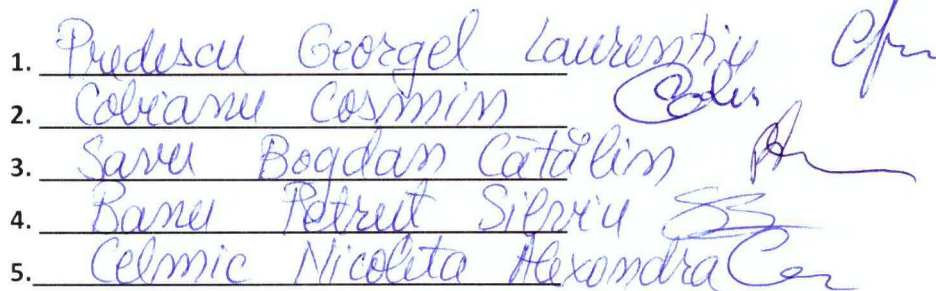 1. Predescu Georgel Laurentiu
2. Cobianu Cosmin
3. Savu Bogdan Cătălin
4. Banu Petrut Silviu
5. Celmic Nicoleta Alexandra